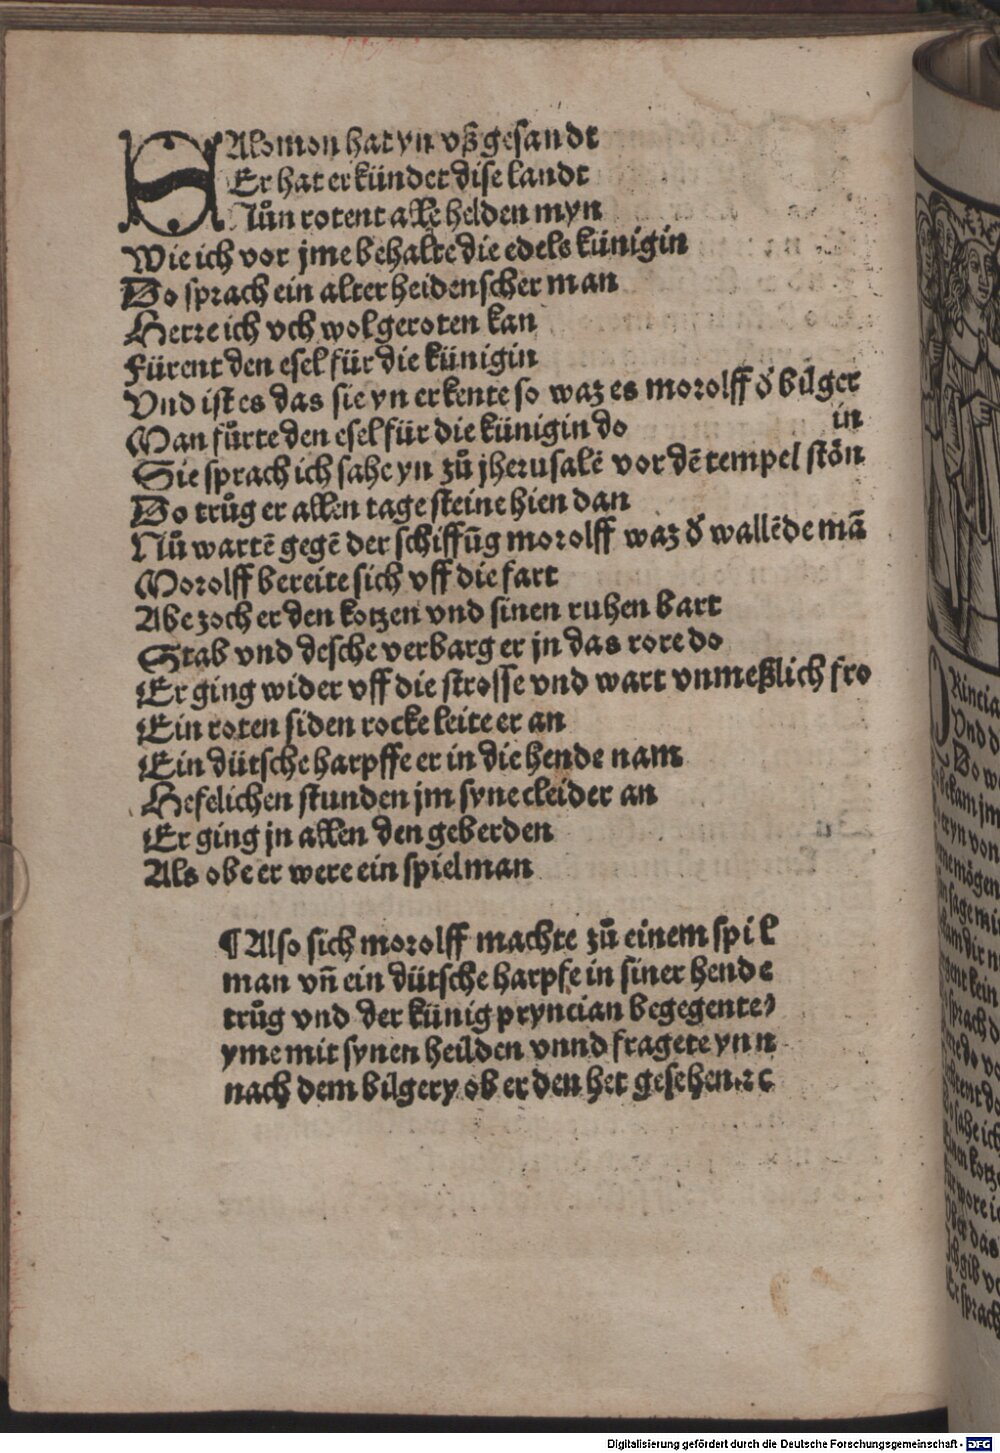 SAlomon hat yn vßgesandt
Er hat erkündet dise landt
Nůn rotent alle helden myn
Wie ich vor jme behalte die edele künigin
Do sprach ein alter heidenscher man
Herre ich vch wol geroten kan
Fürent den esel für die künigin
Vnd ist es das sie yn erkente so waz es morolff d̛ bilger
in
Man fůrte den esel für die künigin do
Sie sprach ich sahe yn zů jherusalē vor dē tempel stōn
Do trůg er allen tage steine hien dan
Nů wartē gegē der schiffūg morolff waz d̛ wallēde mā
Morolff bereite sich vff die fart
Abe zoch er den kotzen vnd sinen ruhen bart
Stab vnd desche verbarg er jn das rore do
Er ging wider vff die strosse vnd wart vnmeßlich fro
Ein roten siden rocke leite er an
Ein dütsche harpffe er in die hende nam
Hefelichen stunden jm syne cleider an
Er ging jn allen den geberden
Als obe er were ein spielman
¶ Also sich morolff machte zů einem spil
man vn̄ ein dütsche harpfe in siner hende
trůg vnd der künig pryncian begegente
yme mit synen heilden vnnd fragete ynn
nach dem bilgery ob er den het gesehen ꝛc
Rincia
Vnd d
Do w
bekam jm
eryn von
mögen
sage mi
dir n
gent kein
sprach d
do vo
sahe ich
kotz
wore i
das
gib vo
Er sprach
Digitalisierung gefördert durch die Deutsche Forschungsgemeinschaft - DFG